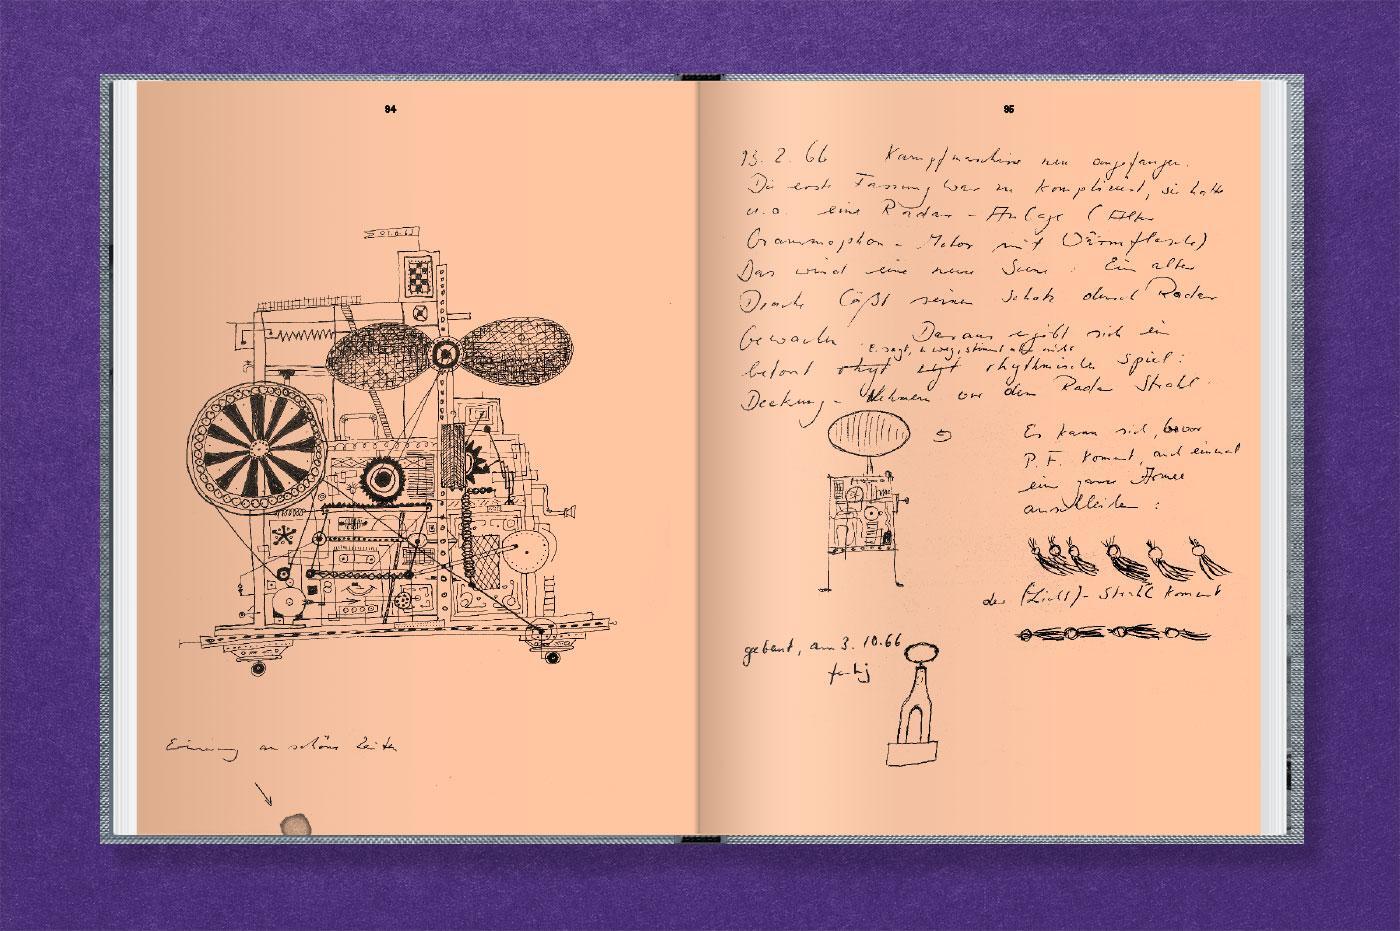 94
Erinnerung an schöne Zeiten
95
13. 2. 66 Kampfmaschine neu angefangen.
Die erste Fassung war zu kompliziert, sie hatte
u.a. eine Radar-Anlage (Alter
Grammophon-Motor mit Wärmflasche)
Das wird eine neue Scene: Ein alter
Drache läßt seinen Schatz durch Radar
bewachen Daraus ergibt sich ein
E. sagt, stimmt aber nicht
betont rhythmisches Spiel:
Deckung-Nehmen vor dem Radar Strahl.
Es kann sich, bevor
P. F. kommt, auch einmal
eine ganze Armee
anschleichen:
der (Licht)-Strahl kommt
gebaut, am 3. 10. 66
fertig